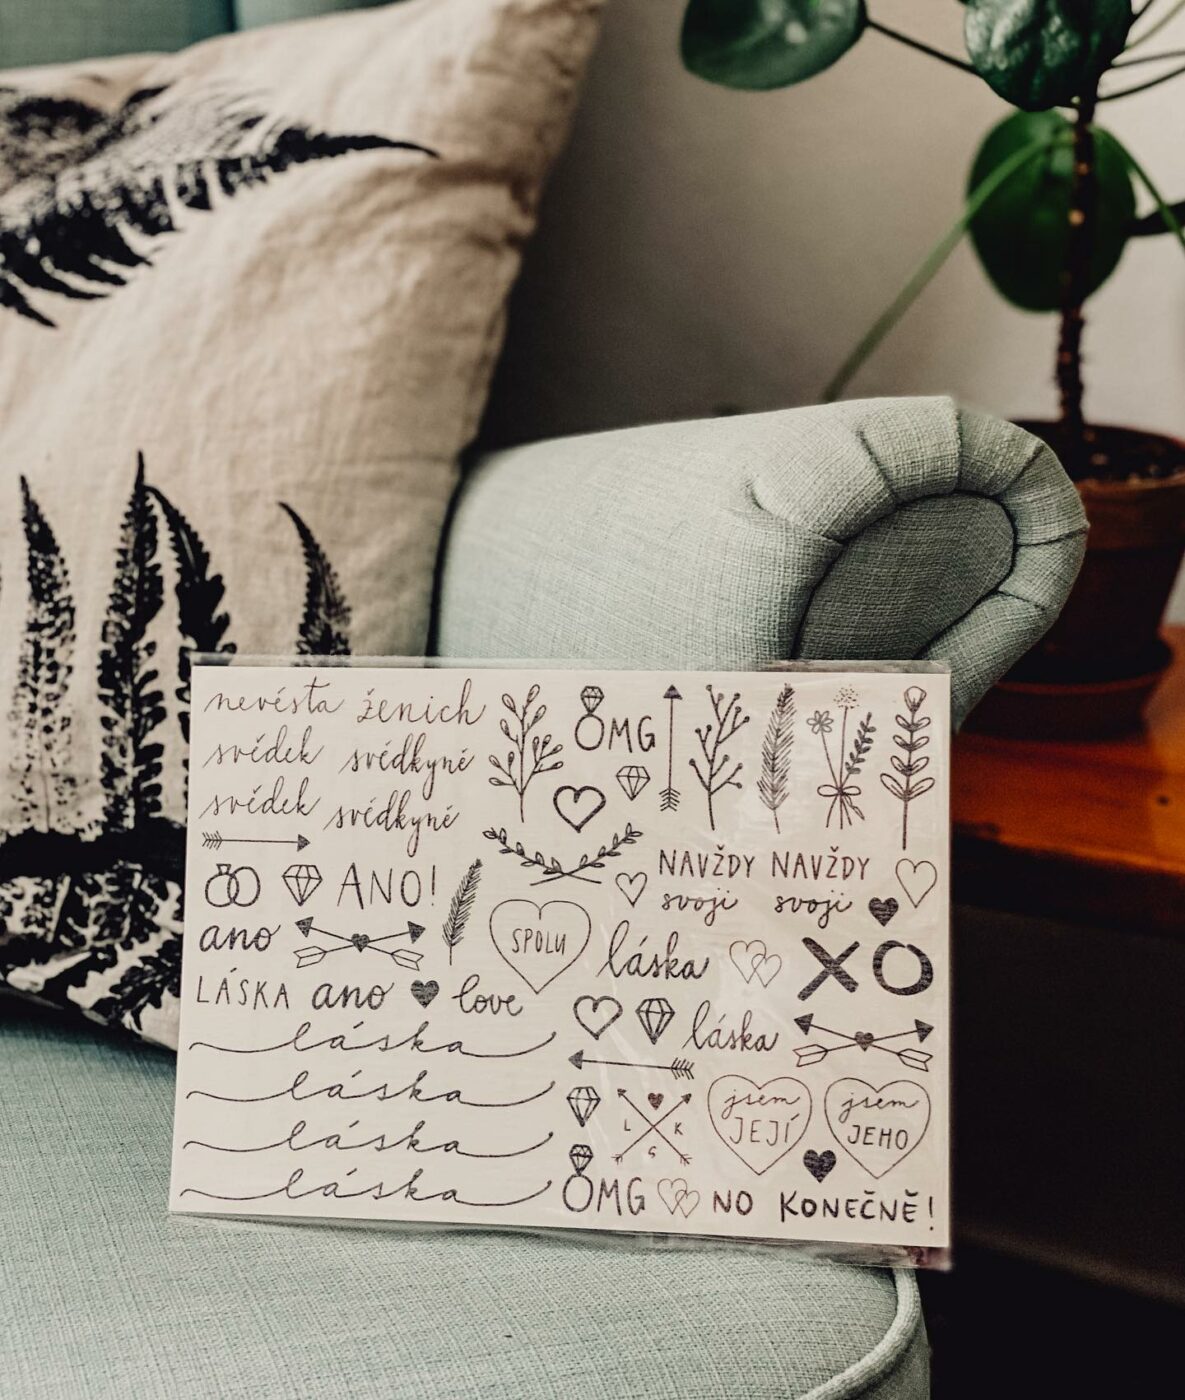 nevěsta ženich
svědek svědkyně
svědek svědkyně
OMG
ANO!
NAVŽDY NAVŽDY
svoji svoji
ano
SPOLU
láska
XO
LÁSKA ano love
láska
láska
láska
láska
láska
L K
G
jsem
JEJÍ
jsem
JEHO
OMG NO KONEČNĚ!